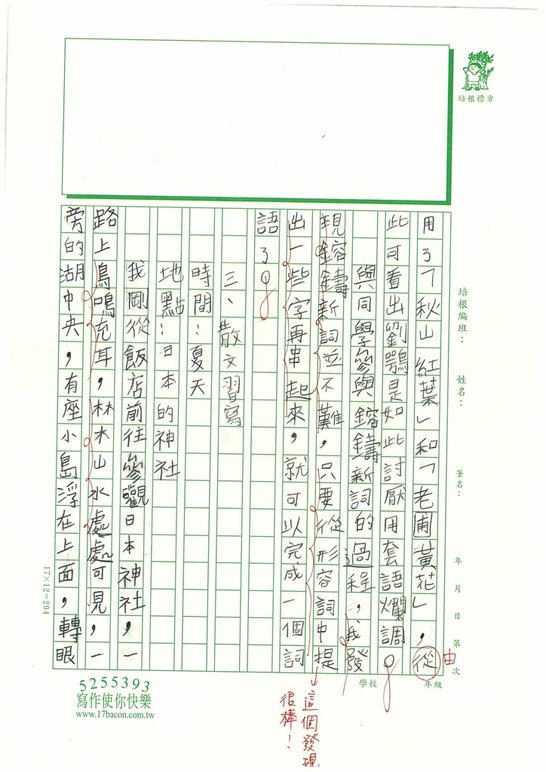 培根標章
培根編班：
姓名：
筆名：
年 月 日 第 次
學校
年級
用了「秋山紅葉」和「老圃黃花」，從
由
此可看出劉鶚是如此討厭用套語爛調。
與同學參與鎔鑄新詞的過程，我發
現鎔鑄新詞並不難，只要從形容詞中提
出一些字再串起來，就可以完成一個詞
語了。
這個發現
很棒！
三、散文習寫
時間：夏天
地點：日本的神社
我剛從飯店前往參觀日本神社，一
路上鳥鳴充耳，林木山水處處可見，一
旁的湖中央，有座小島浮在上面，轉眼
17×12=204
5255393
寫作使你快樂
www.17bacon.com.tw